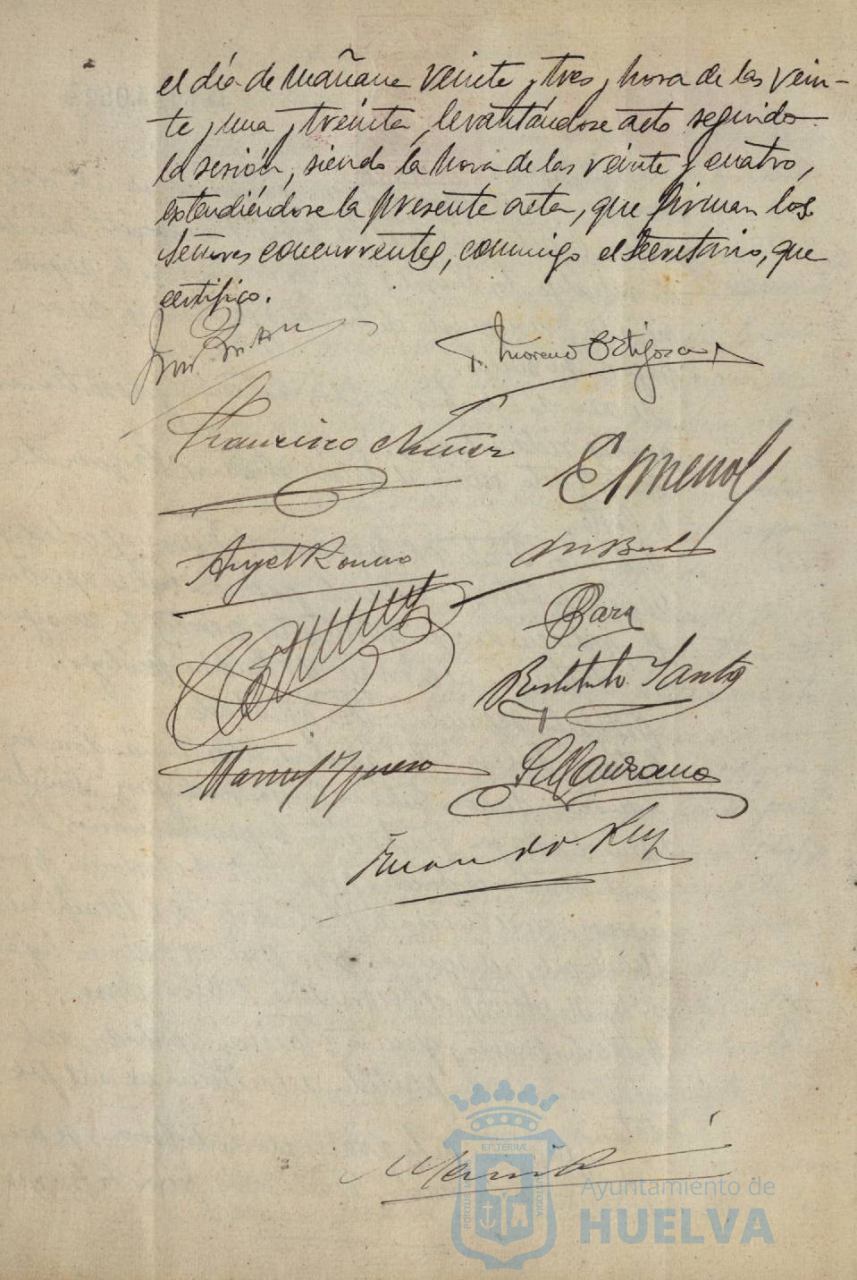 el día de mañana veinte y tres, hora de las vein-
te y una y treinta, levantándose acto seguido
la sesión, siendo la hora de las veinte y cuatro,
extendiéndose la presente acta, que firman los
Señores concurrentes, conmigo el Secretario, que
certifico.
Moreno Ortigosa
Francisco Núñez
Angel Romero
Restituto Santos
Manuel
Manzano
Ruiz
Ayuntamiento de
HUELVA